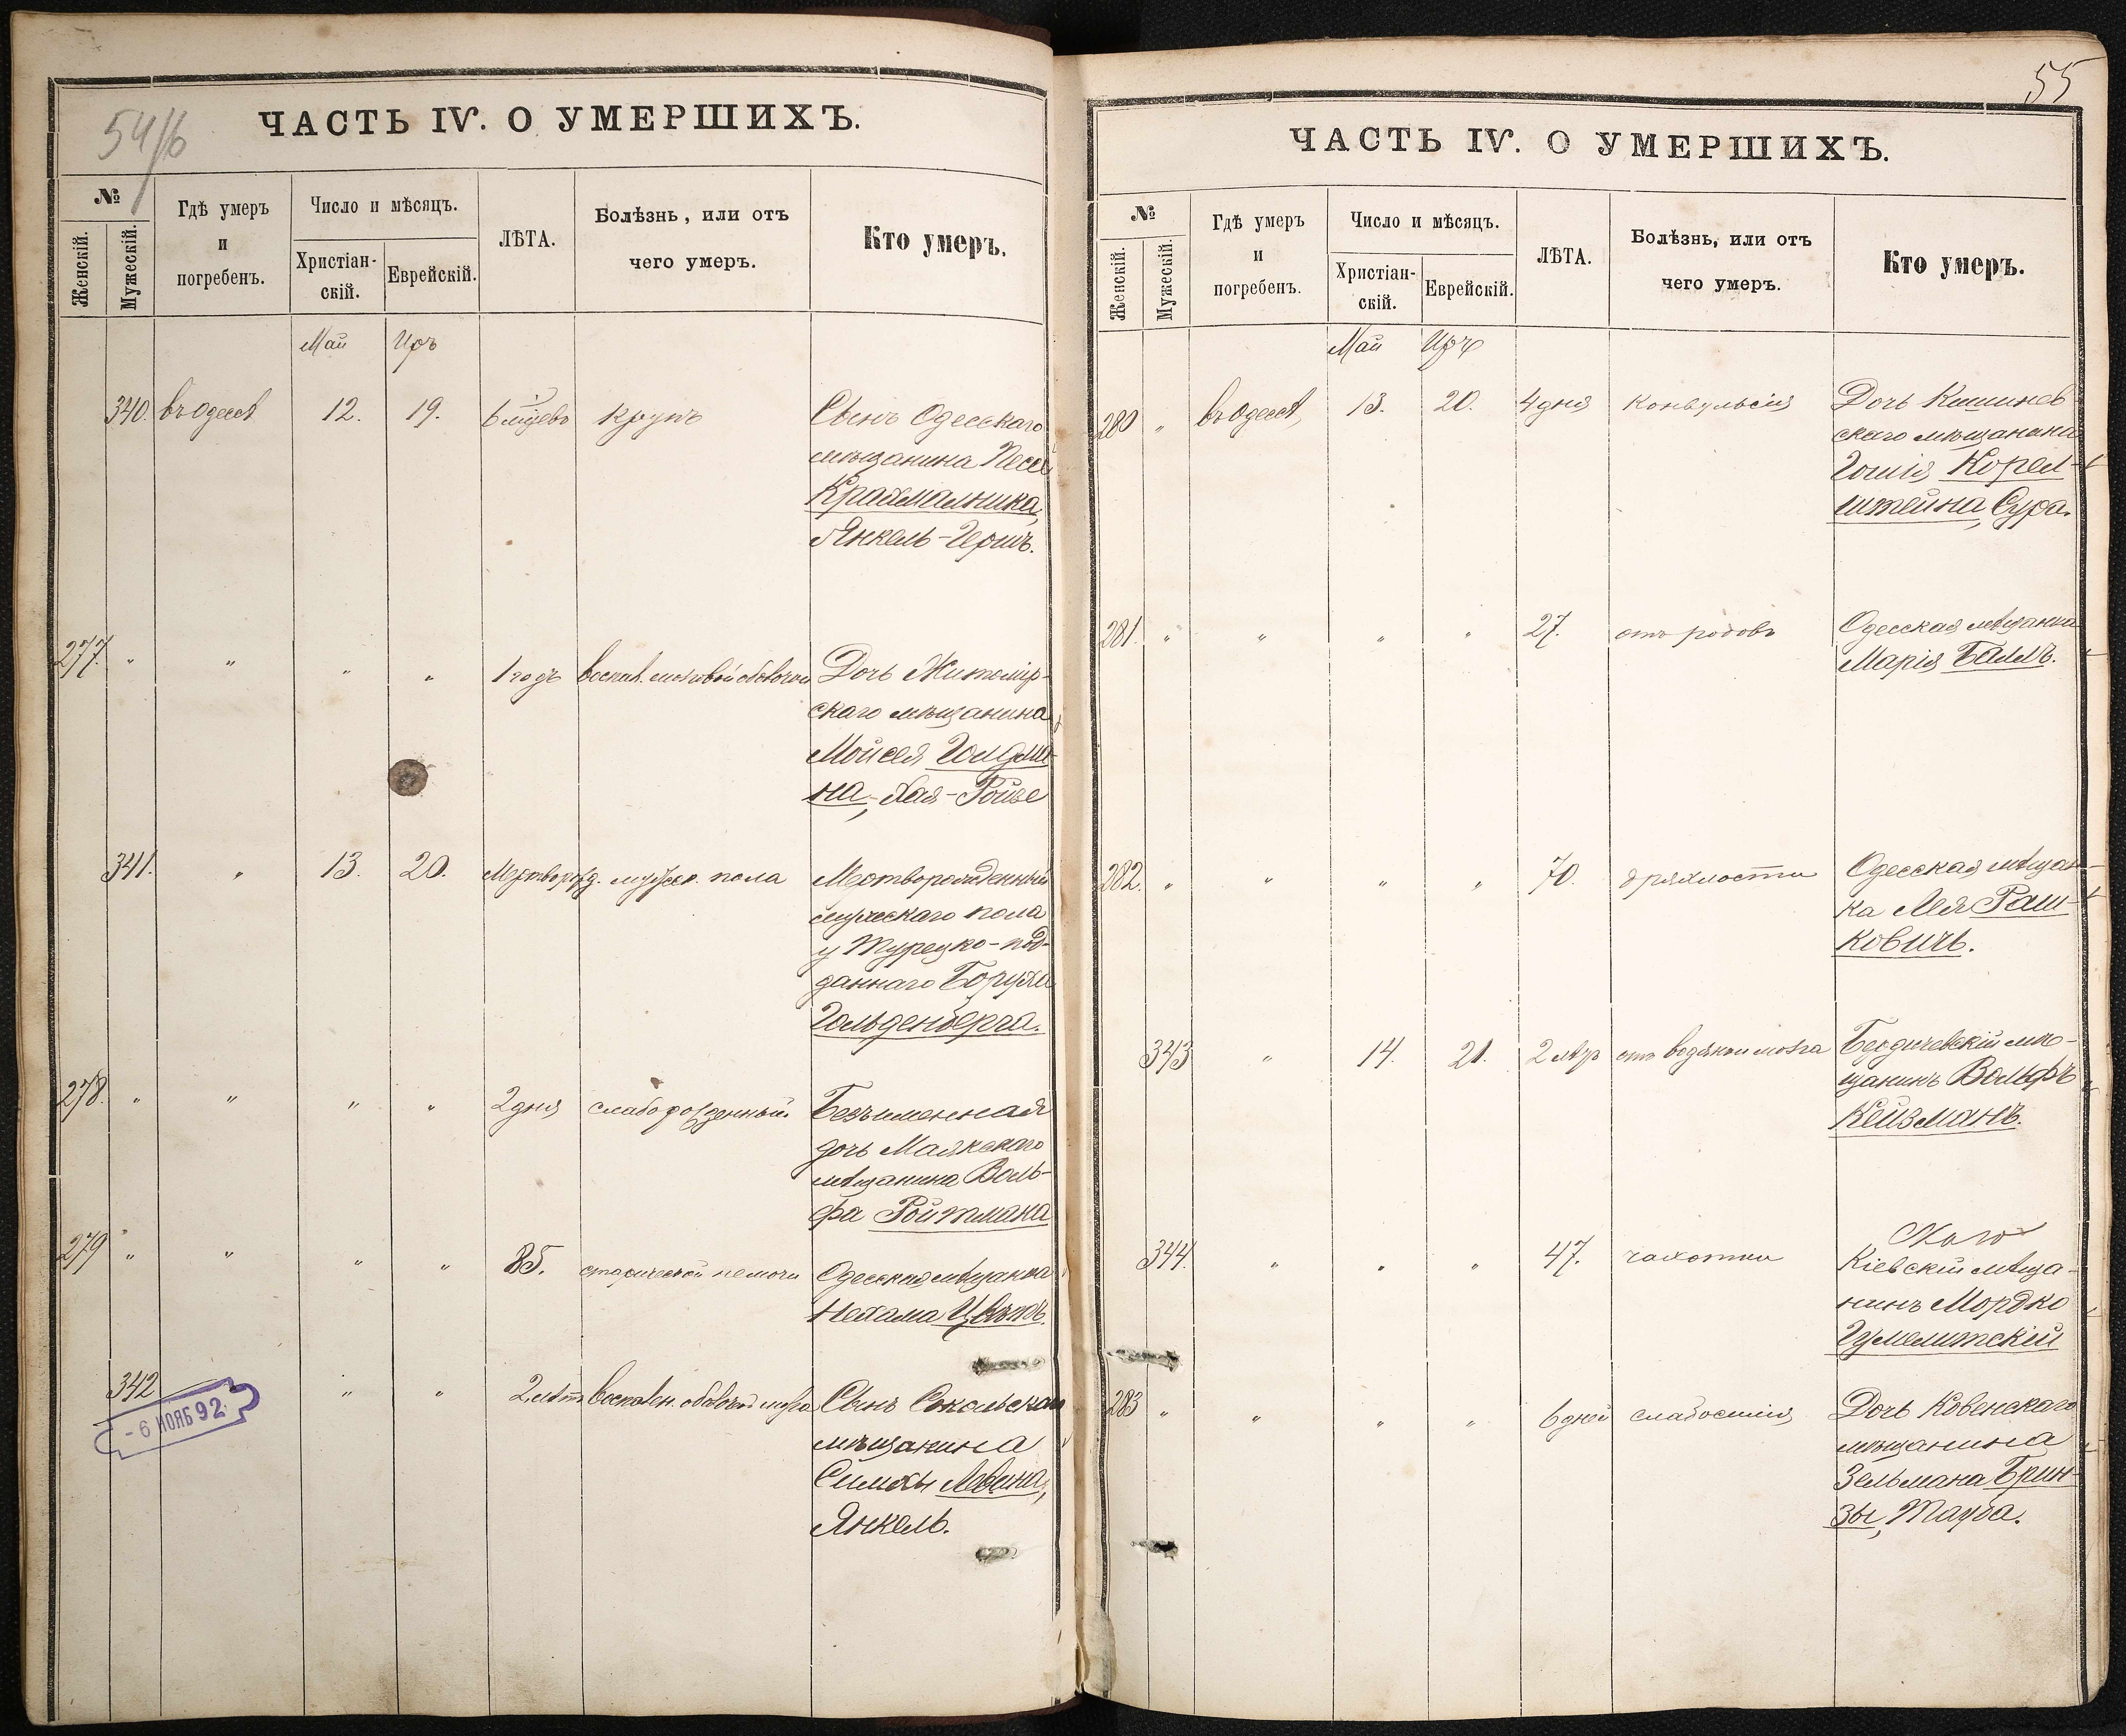 54/б
ЧАСТЬ IV. О УМЕРШИХЪ.
№
Женскій.
Мужескій.
Гдѣ умеръ
и
погребенъ.
Число и мѣсяцъ.
Христіан-
скій.
Еврейскій.
ЛѢТА.
Болѣзнь, или отъ
чего умеръ.
Кто умеръ.
Май Иръ
340. въ Одессѣ 12. 19. 6 мѣцевъ крупъ Сынъ Одесскаго
мѣщанина
Крахмальника,
Янкель-Герш.
277. " " " " 1 годъ воспал. мозговой оболочки Дочь Житомір-
скаго мѣщанина
Мойсея Гольдма-
на, Хая-Ройзе
341. " 13. 20. Мертворожд. мужеск. пола Мертворожденный
мужескаго пола
у Турецко-под-
даннаго Боруха
Гольденберга.
278. " " " " 2 дня слаборожденный Безъименная
дочь Маякскаго
мѣщанина Воль-
фа Ройтмана
279 " " " " 85. старческой немочи Одесская мѣщанка
Нехама Цвѣтъ.
342 " " 2 лѣтъ воспален. оболочк. мозга Сынъ
мѣщанина
Симхи Левина,
Янкель.
- 6 НОЯБ 92.
55
ЧАСТЬ IV. О УМЕРШИХЪ.
№
Женскій.
Мужескій.
Гдѣ умеръ
и
погребенъ.
Число и мѣсяцъ.
Христіан-
скій.
Еврейскій.
ЛѢТА.
Болѣзнь, или отъ
чего умеръ.
Кто умеръ.
Май Иръ
280 " въ Одессѣ, 13. 20. 4 дня конвульсія Дочь Кишинев
скаго мѣщанина
Корен-
штейна, Сура.
281. " " " " 27. отъ родовъ Одесская мѣщанка
Марія Баллъ.
282. " " " " 70. дряхлости Одесская мѣщан-
ка Лея Раш-
ковичъ.
343 " 14. 21. 2 лѣтъ отъ водянки мозга Бердичевскій мѣ-
щанинъ Вольфъ
Кейзманъ.
344. " " " 47. чахотки
Кіевскій мѣща-
нинъ Мордко
283 " " " " 6 дней слабосилія Дочь Ковенскаго
мѣщанина
Зельмана Брин-
зы, Тауба.